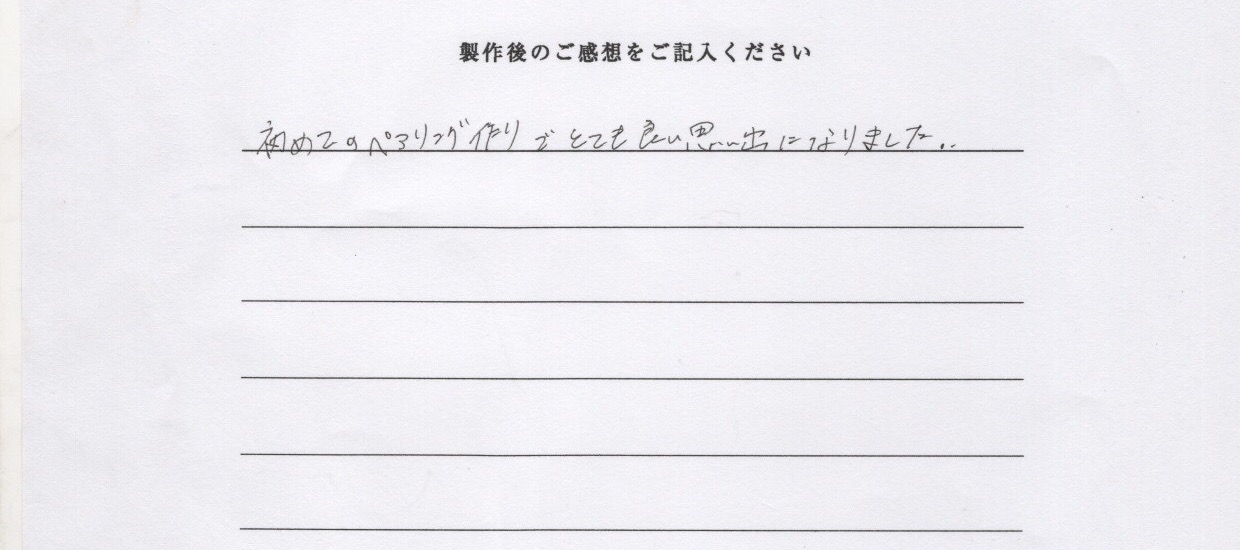 製作後のご感想をご記入ください
初めてのペアリング作りでとても良い思い出になりました..